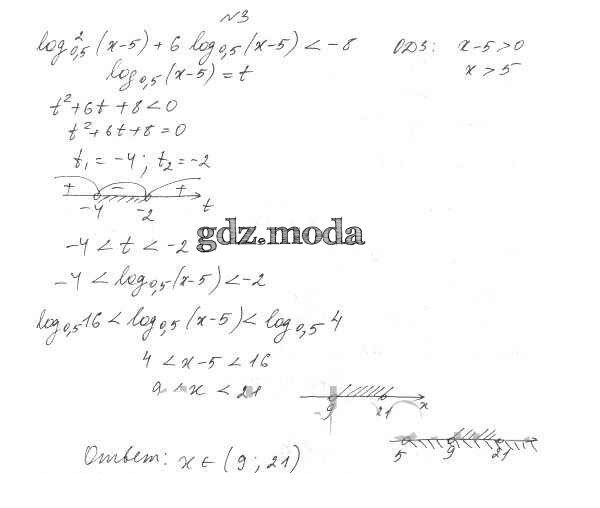 №3
log²₀,₅(x-5) + 6 log₀,₅(x-5) < -8 ОДЗ: x-5>0
log₀,₅(x-5) = t x > 5
t²+6t+8<0
t²+6t+8=0
t₁ = -4; t₂ = -2
+ - +
-4 -2 t
gdz.moda
-4 < t < -2
-4 < log₀,₅(x-5) < -2
log₀,₅16 < log₀,₅(x-5) < log₀,₅4
4 < x-5 < 16
9 < x < 21
9 21 x
5 9 21
Ответ: x ∈ (9; 21)